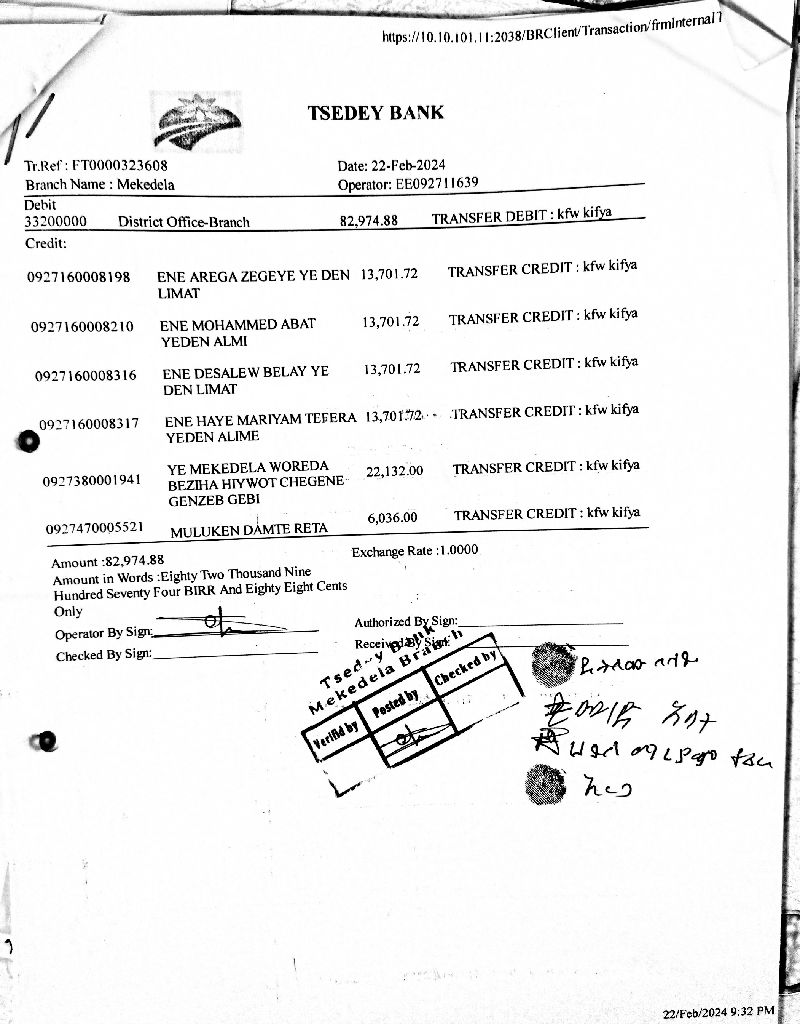 https://10.10.101.11:2038/BRClient/Transaction/frmInternalT
TSEDEY BANK
Tr.Ref : FT0000323608 Date: 22-Feb-2024
Branch Name : Mekedela Operator: EE092711639
Debit
33200000 District Office-Branch 82,974.88 TRANSFER DEBIT : kfw kifya
Credit:
0927160008198 ENE AREGA ZEGEYE YE DEN 13,701.72 TRANSFER CREDIT : kfw kifya
LIMAT
0927160008210 ENE MOHAMMED ABAT 13,701.72 TRANSFER CREDIT : kfw kifya
YEDEN ALMI
0927160008316 ENE DESALEW BELAY YE 13,701.72 TRANSFER CREDIT : kfw kifya
DEN LIMAT
0927160008317 ENE HAYE MARIYAM TEFERA 13,701.72 TRANSFER CREDIT : kfw kifya
YEDEN ALIME
0927380001941 YE MEKEDELA WOREDA 22,132.00 TRANSFER CREDIT : kfw kifya
BEZIHA HIYWOT CHEGENE
GENZEB GEBI
0927470005521 MULUKEN DAMTE RETA 6,036.00 TRANSFER CREDIT : kfw kifya
Amount :82,974.88 Exchange Rate :1.0000
Amount in Words :Eighty Two Thousand Nine
Hundred Seventy Four BIRR And Eighty Eight Cents
Only
Operator By Sign: Authorized By Sign:
Checked By Sign: Received By Sign:
Tsedey Bank
Mekedela Branch
Verifid by Posted by Checked by
22/Feb/2024 9:32 PM